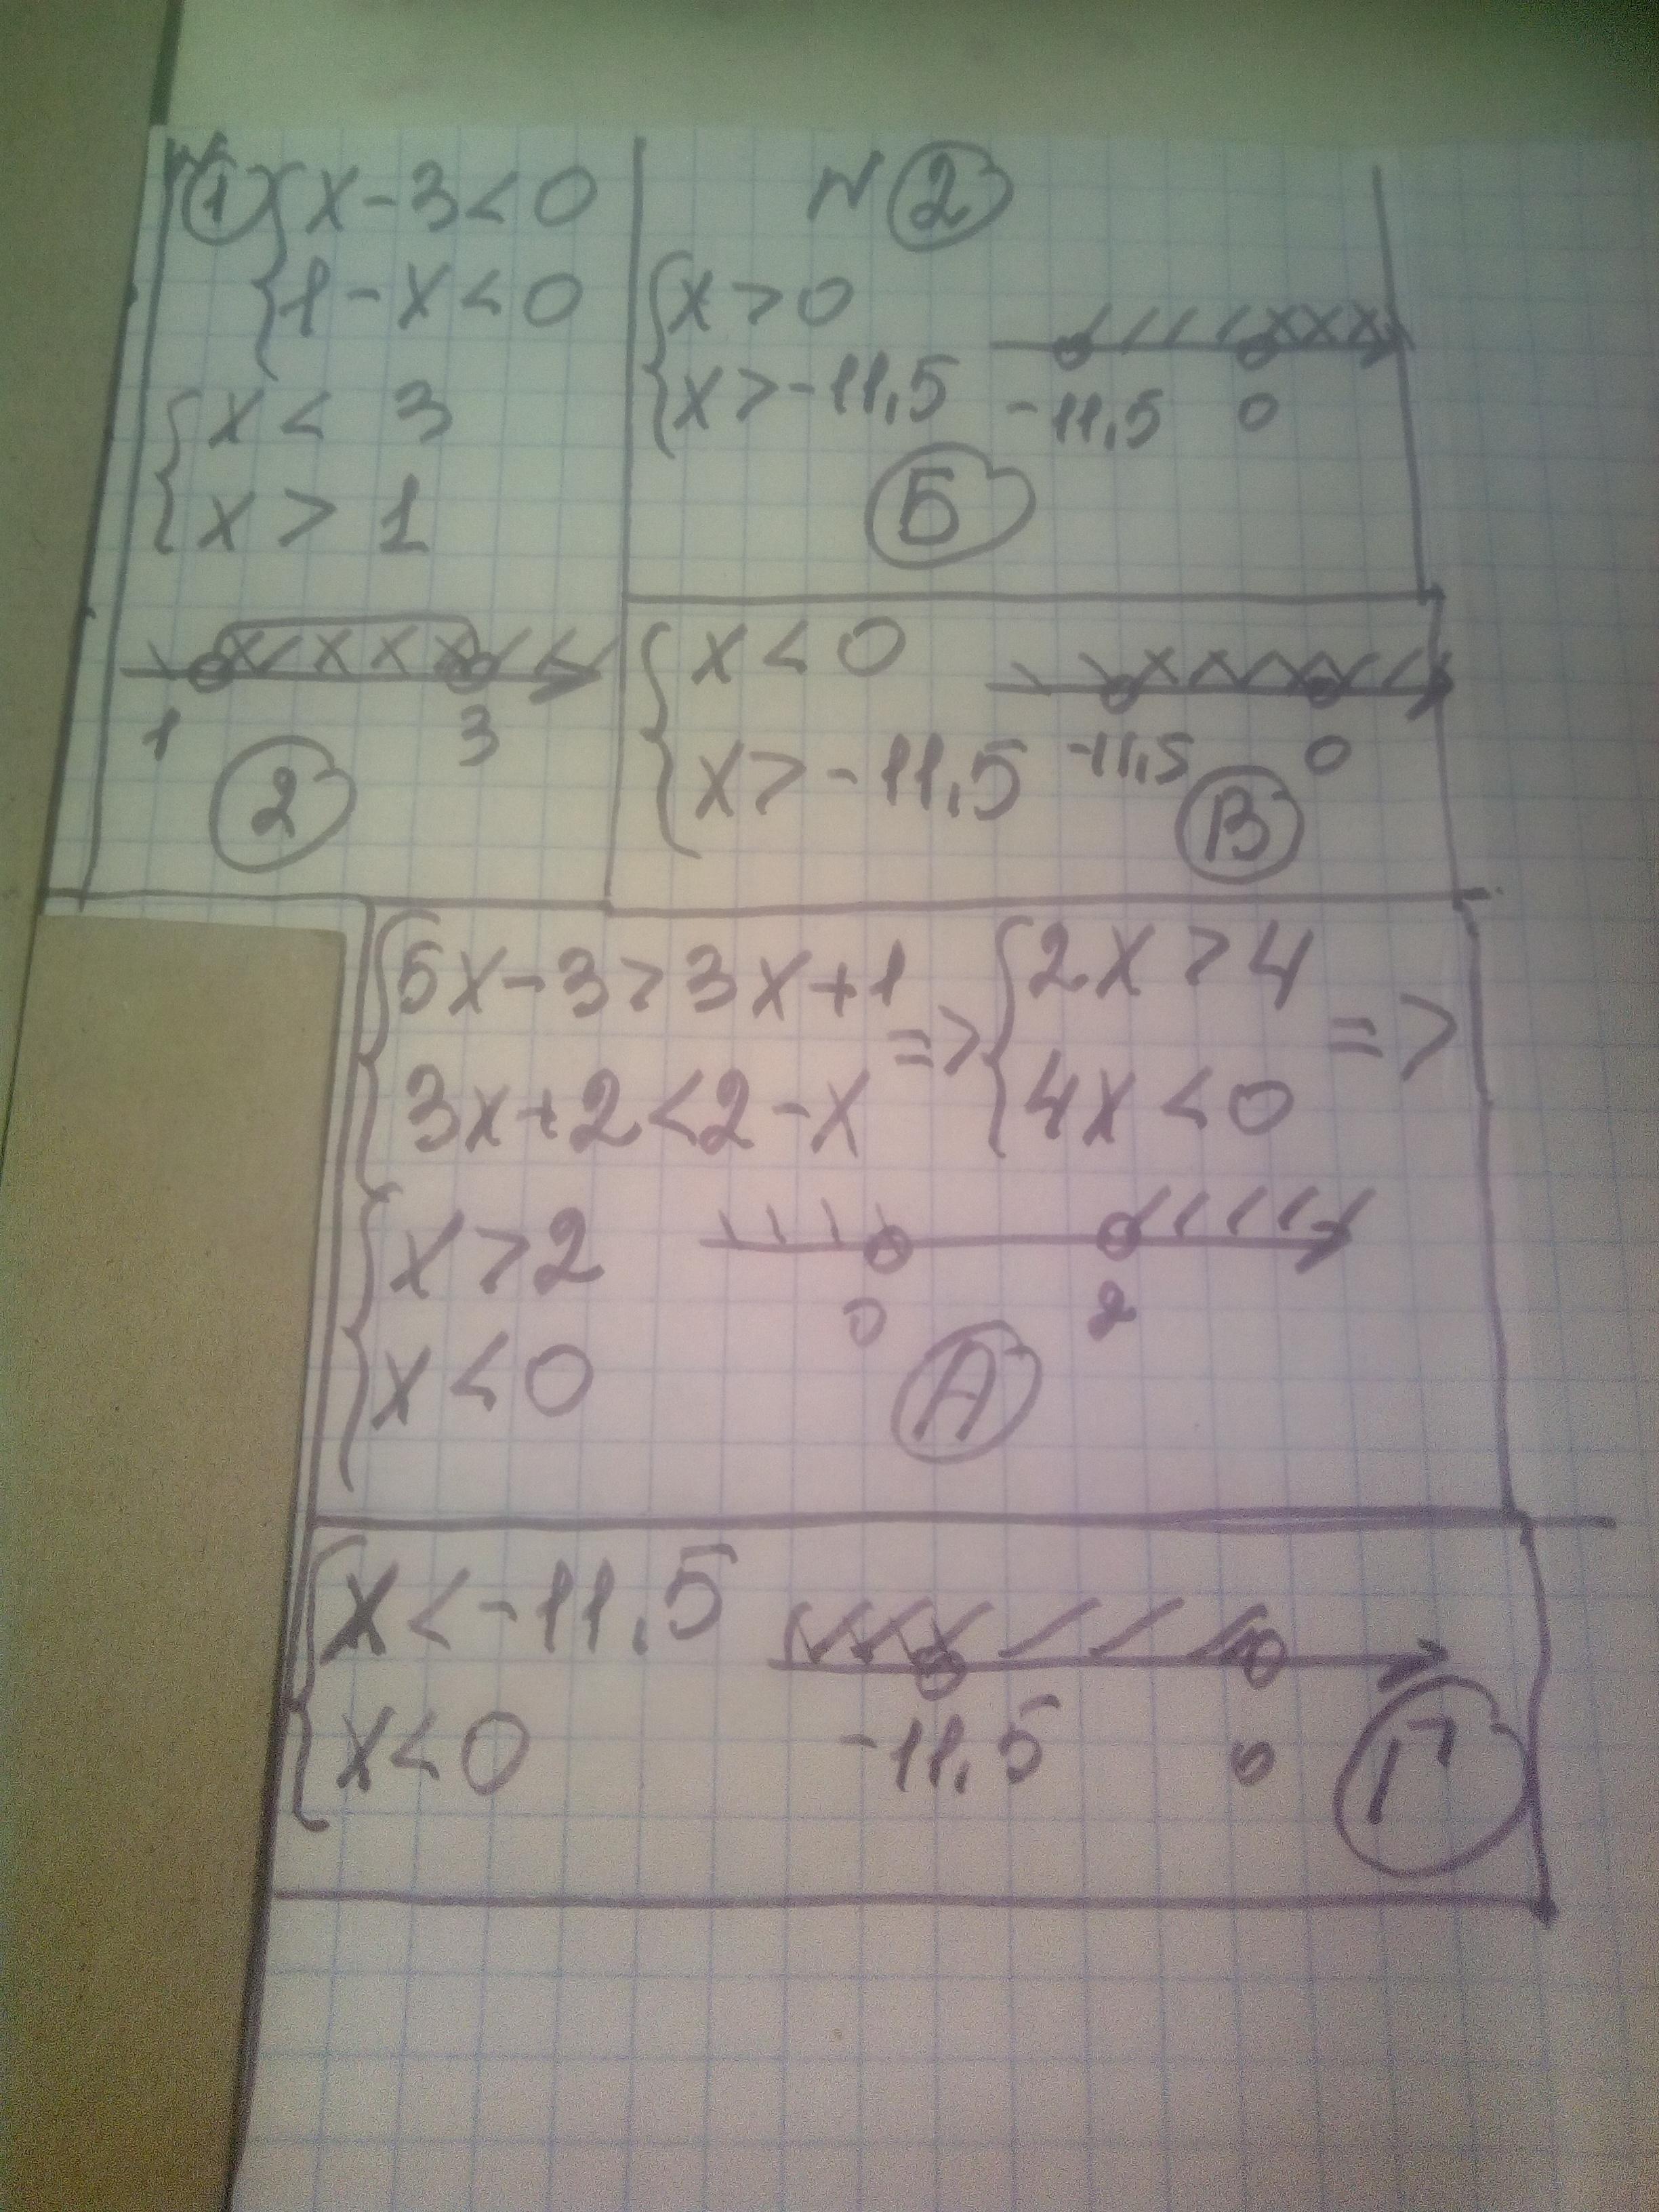 N 1 { x - 3 < 0
1 - x < 0
{ x < 3
x > 1
1 3
2
N 2
{ x > 0
x > -11,5
-11,5 0
Б
{ x < 0
x > -11,5
-11,5 0
В
{ 5x - 3 > 3x + 1 => { 2x > 4 =>
3x + 2 < 2 - x 4x < 0
{ x > 2
x < 0
0 2
А
{ x < -11,5
x < 0
-11,5 0
Г